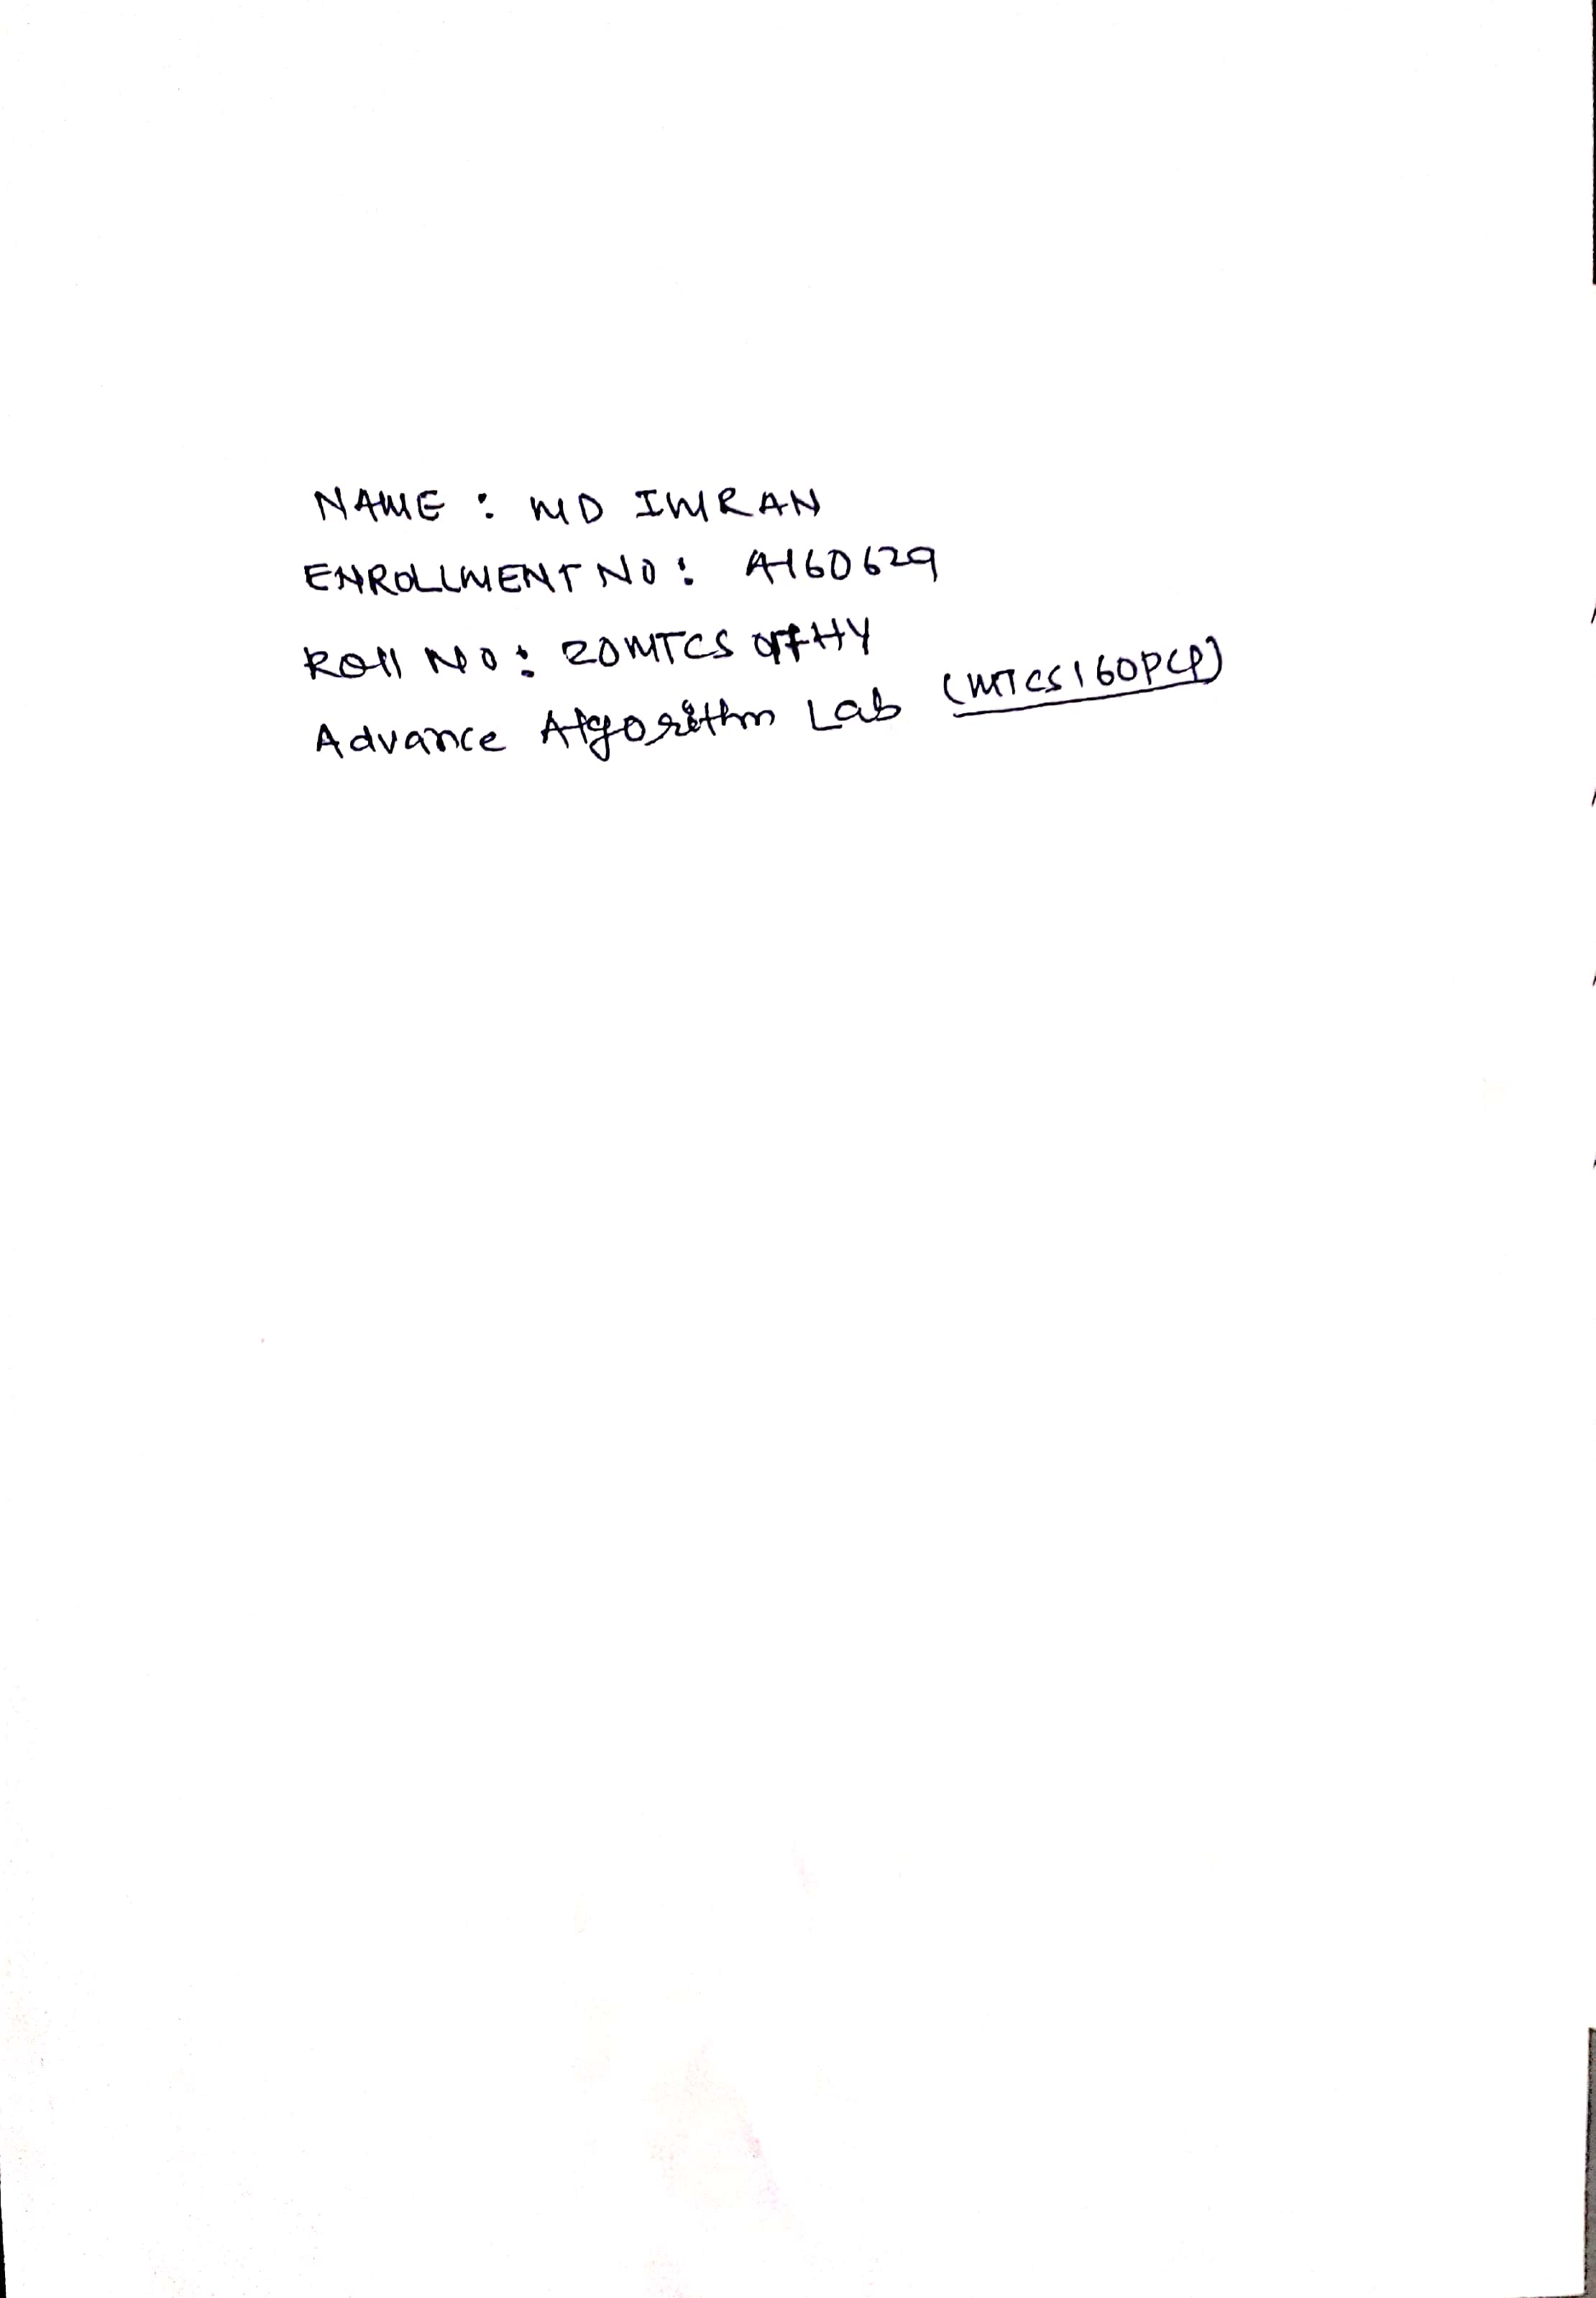 NAME : MD IMRAN
ENROLLMENT NO: A160629
Roll NO: 20MTCS
Advance Algorithm Lab (MTCS160PCP)